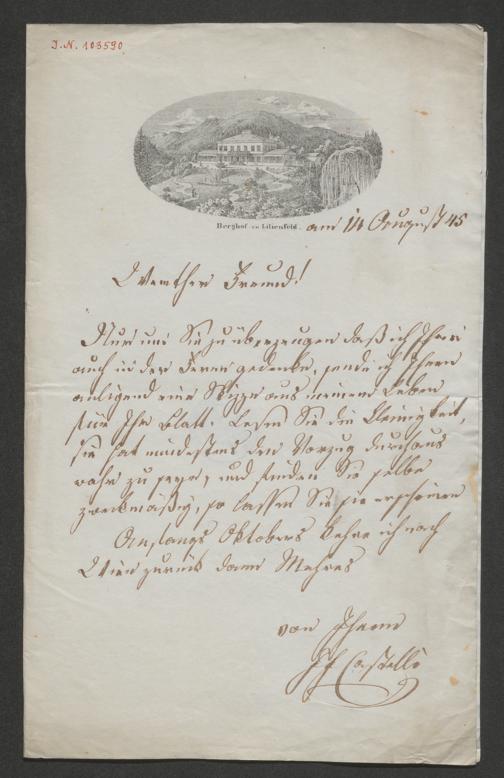 I.N. 103590
Berghof zu Lilienfeld. am 14 August 45
Werther Freund!
Nur um Sie zu überzeugen daß ich Ihrer
auch in der Ferne gedenke, sende ich Ihnen
anliegend eine Skizze aus meinem Leben
für Ihr Blatt. Lesen Sie die Kleinigkeit,
sie hat mindestens den Vorzug durchaus
wahr zu seyn, und finden Sie selbe
zweckmäßig, so lassen Sie sie erscheinen
Anfangs Oktobers kehre ich nach
Wien zurück dann Mehres
von Ihrem
Castelli